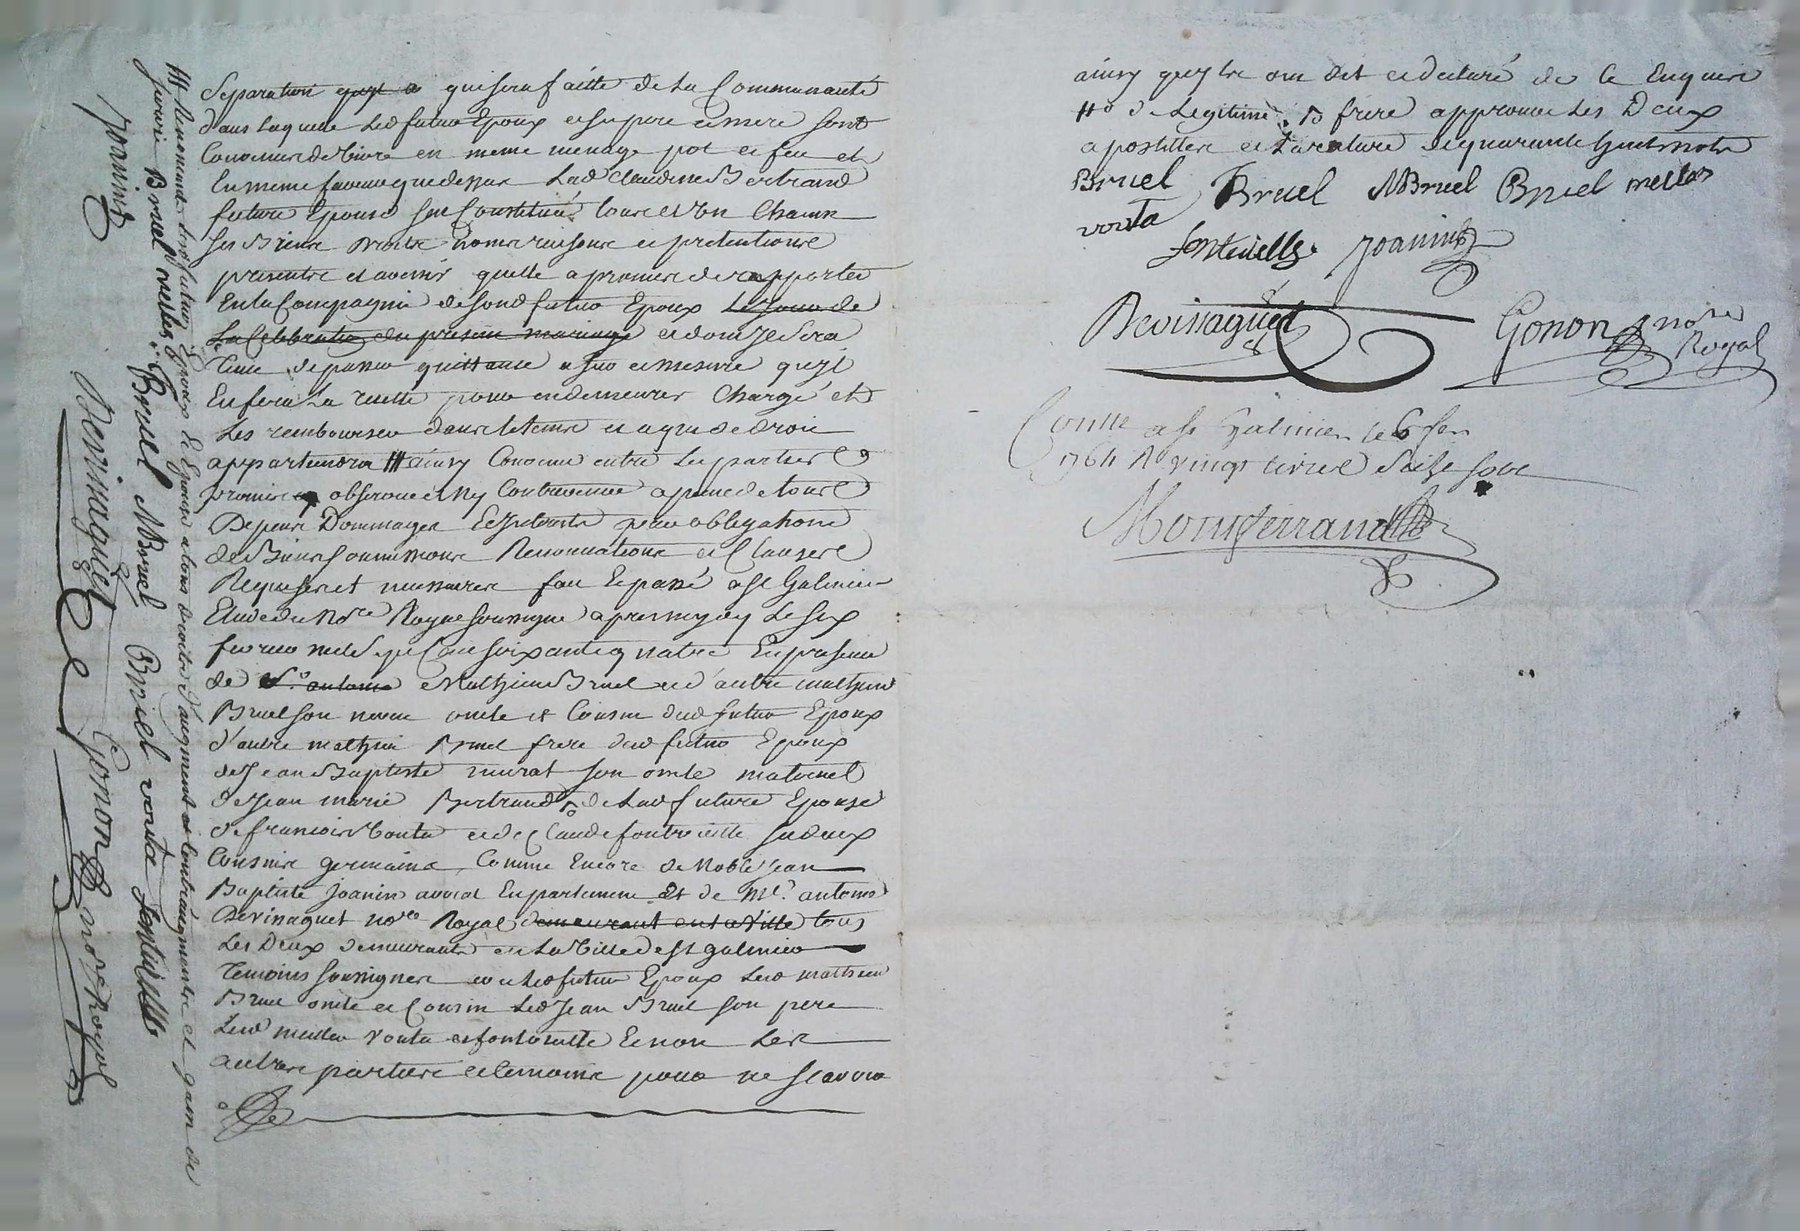 Separation quyl a qui sera faitte de la Communauté
dans laquelle led futur Epoux et su pere et mere sont
Convenus de vivre en meme menage pot et feu et
En meme faveur que dessus Lad Claudine Bertrand
future Epouse sest Constitué tous et un Chacun
ses Biens Droits noms raisons et pretentions
presents et avenir quelle a promis de rapporter
En la Compagnie de sond futur Epoux Le Jour de
La Celebration du present mariage et dont Il Sera
tenu de passer quittance a fur et mesure quyl
En fera La recette pour en demeurer Chargé et
Les rembourser dans le tems et a qui de droit
appartiendra # ainsy Convenu entre Les parties
promis observer et ny Contrevenir a peine de tous
Depens Dommages Interets par obligations
de Biens soumissions Renonciations et Clauses
Requises et necessaires fait Et passé a St Galmier
Etude du nore Royal soussigné apres mydy Le six
fevrier mil sept Cent soixante quatre En presence
de Sr antoine Mathieu Bruel et d'autre mathieu
Bruel son neveu oncle et Cousin dud futur Epoux
d'autre mathieu Bruel frere dud futur Epoux
de Jean Baptiste murat son oncle maternel
de Jean marie Bertrand de Lad future Epouse
de francois vouta et de Claude fontvieille ses deux
Cousins germains, Comme Encore de Noble Jean
Baptiste Joanin avocat En parlement Et de Me. antoine
Devinaguet nore Royal demeurant en la ville tous
Les Deux demeurants en La Ville de St galmier
Temoins soussignes avec led futur Epoux Led mathieu
Bruel oncle et Cousin Led Jean Bruel son pere
Led meilles vouta et fontvieille Et non Les
autres parties et temoins pour ne scavoir
# au moment dud futur Epoux de Epouse a tous droits d'augment et Contreaugment et gain de
survie Bruel meilles Bruel MBruel Bruel vouta fontvielle
Joanin
Devinaguet Gonon nore Royal
ainsy quyls ont dit et declaré de Ce Enquis
# de Legitime, frere approuve Les Deux
apostilles et La rature de quarante huit mots
Bruel Bruel MBruel Bruel meilles
vouta
fontvielle Joanin
Devinaguet Gonon nore
Royal
Conlle a St Galmier le 6 fer
1764 R vingt livres Seize sols
Montferrand